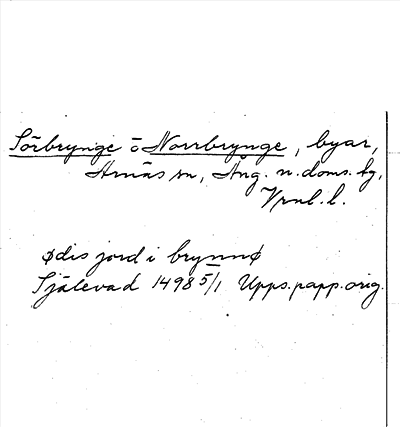 Sörbrynge o Norrbrynge, byar,
Arnäs sn, Ång. n. doms. bg,
Vrnl. l.
ødis jord i brynnø
Själevad 1498 5/1 Upps. papp. orig.